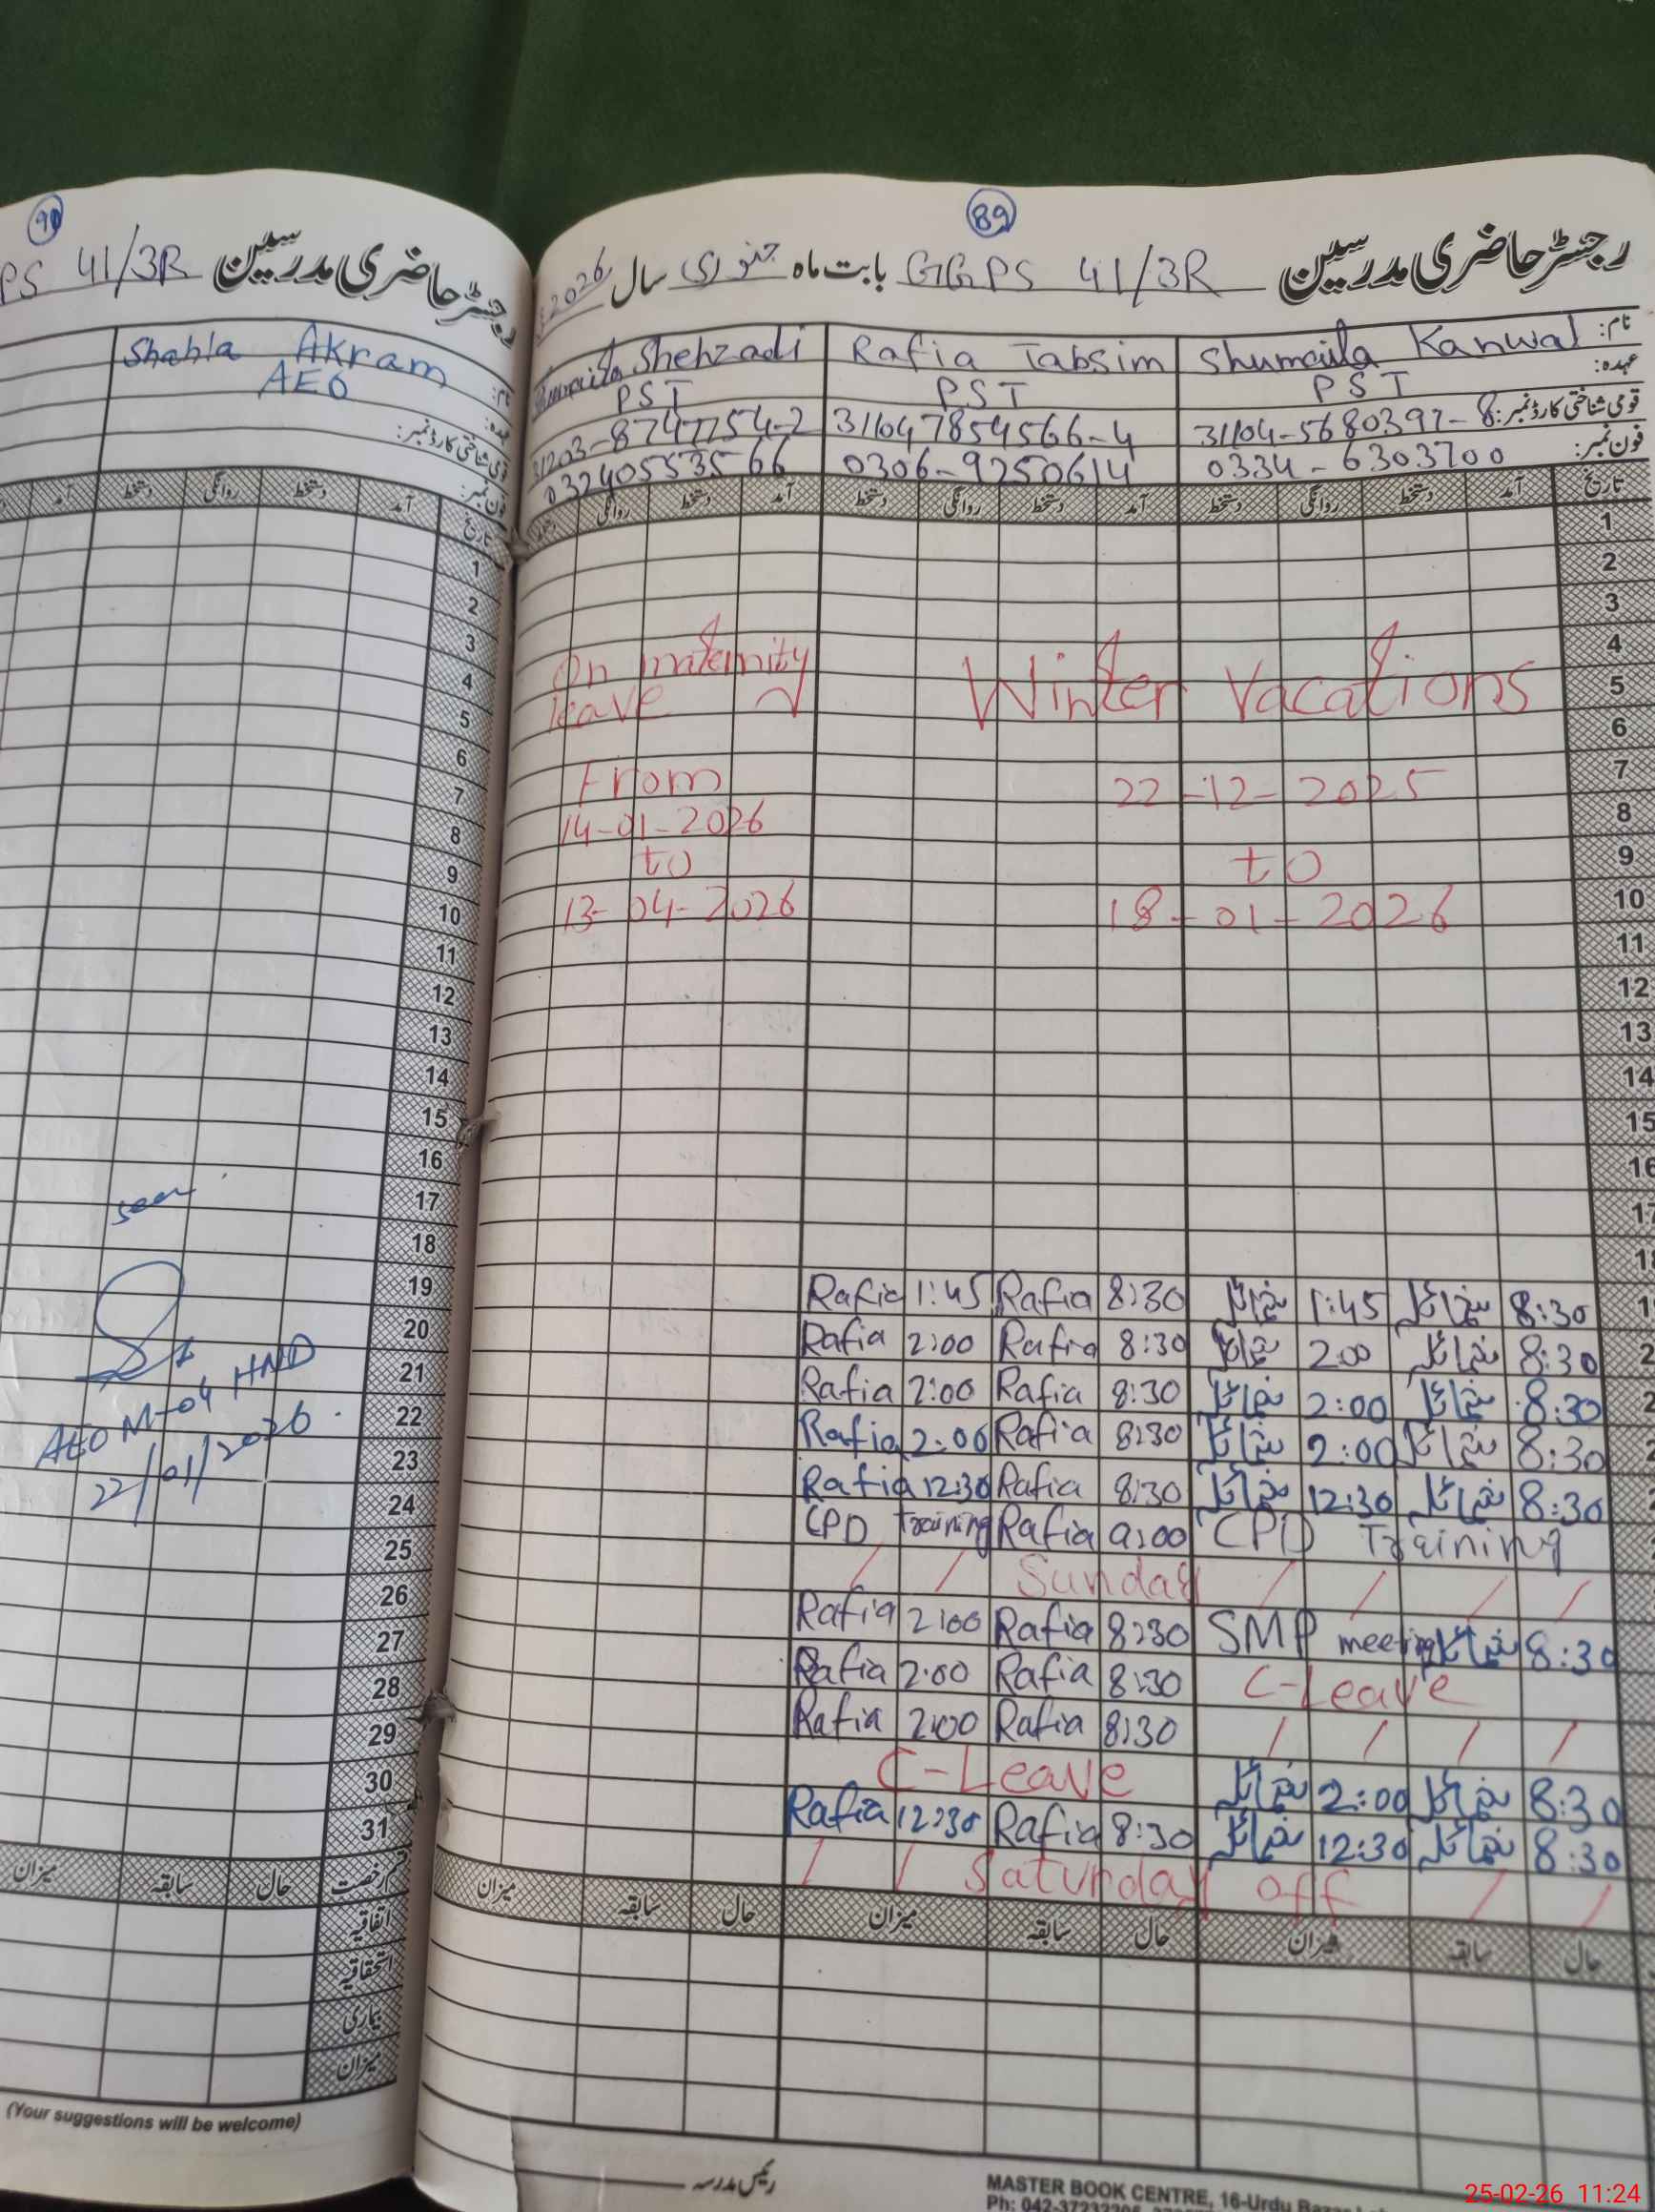 89
رجسٹر حاضری مدرسین GGPS 41/3R بابت ماہ جنوری سال 2026
نام: Shumaila Kanwal Rafia Tabsim Shehzadi
عہدہ: PST PST PST
قومی شناختی کارڈ نمبر: 31104-5680397-8 311047854566-4
فون نمبر: 0334-6303700 0306-9250614 03240553566
تاریخ آمد دستخط روانگی دستخط آمد دستخط روانگی دستخط آمد دستخط روانگی
1
2
3
4
5 Winter Vacations On maternity leave
6
7 22-12-2025 From
8 14-01-2026
9 to to
10 18-01-2026 13-04-2026
11
12
13
14
15
16
17
18
8:30 شمائلہ 1:45 شمائلہ 8:30 Rafia 1:45 Rafia
8:30 شمائلہ 2:00 شمائلہ 8:30 Rafia 2:00 Rafia
8:30 شمائلہ 2:00 شمائلہ 8:30 Rafia 2:00 Rafia
8:30 شمائلہ 2:00 شمائلہ 8:30 Rafia 2:00 Rafia
8:30 شمائلہ 12:30 شمائلہ 8:30 Rafia 12:30 Rafia
CPD Training 9:00 Rafia CPD Training
Sunday
8:30 شمائلہ SMP meeting 8:30 Rafia 2:00 Rafia
C-Leave 8:30 Rafia 2:00 Rafia
8:30 Rafia 2:00 Rafia
8:30 شمائلہ 2:00 شمائلہ C-Leave
8:30 شمائلہ 12:30 شمائلہ 8:30 Rafia 12:30 Rafia
Saturday off
حال سابقہ میزان حال سابقہ میزان حال سابقہ میزان
رئیس مدرسہ
MASTER BOOK CENTRE, 16-Urdu
90
رجسٹر حاضری مدرسین PS 41/3R
نام: Shahla Akram
عہدہ: AEO
قومی شناختی کارڈ نمبر:
فون نمبر:
تاریخ آمد دستخط روانگی دستخط آمد
1
2
3
4
5
6
7
8
9
10
11
12
13
14
15
16
17 seen
18
19
20
21
22 AEO M-04 HND
23 22/01/2026
24
25
26
27
28
29
30
31
قسم رخصت حال سابقہ میزان
اتفاقیہ
استحقاقیہ
بیماری
میزان
(Your suggestions will be welcome)
25-02-26 11:24